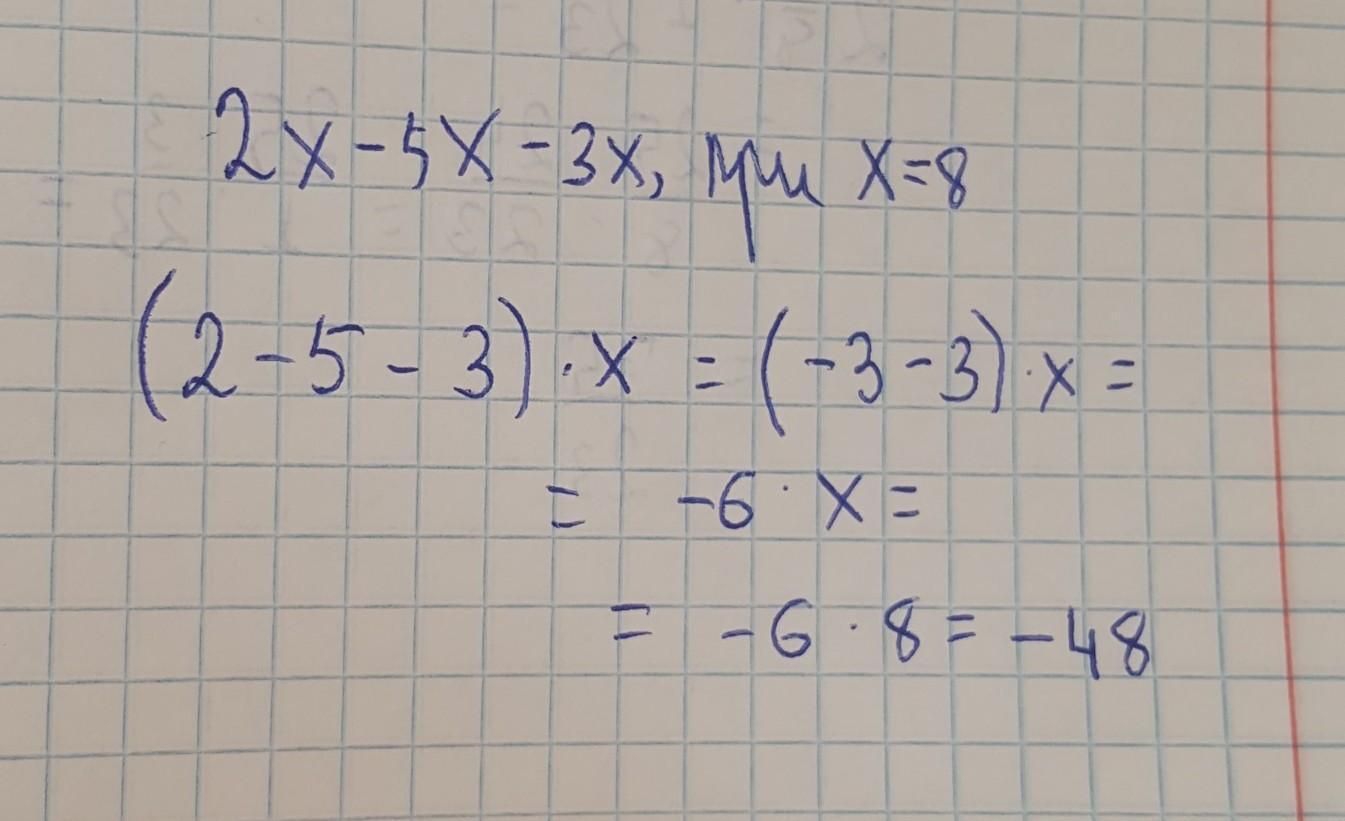 2x-5x-3x, при x=8
(2-5-3)·x=(-3-3)·x=
= -6·x=
= -6·8=-48